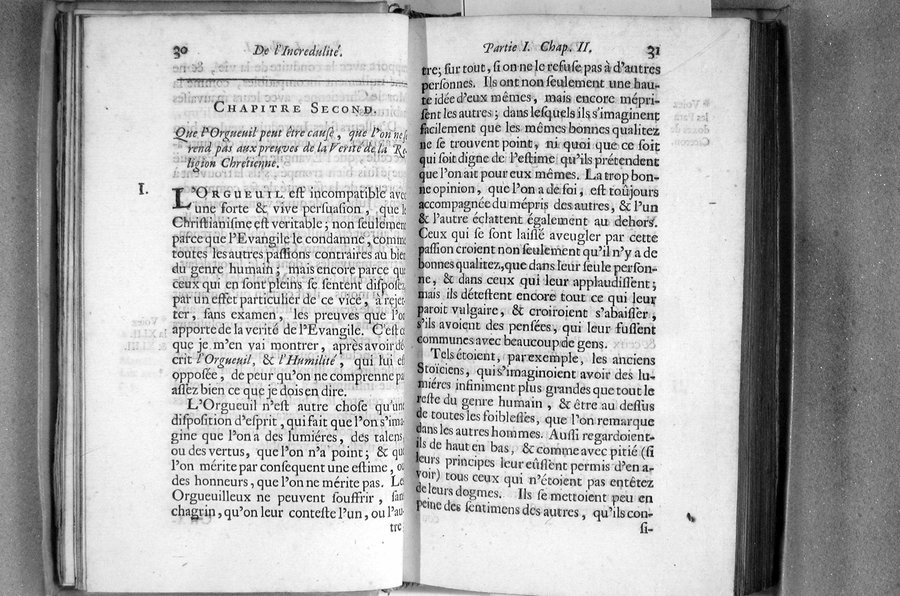 30 De l'Incredulité.
CHAPITRE SECOND.
Que l'Orgueil peut être cause, que l'on ne se
rend pas aux preuves de la Verité de la Re-
ligion Chrétienne.
I.
L'ORGUEUIL est incompatible avec
une forte & vive persuasion, que le
Christianisme est veritable; non seulement
parce que l'Evangile le condamne, comme
toutes les autres passions contraires au bien
du genre humain; mais encore parce que
ceux qui en sont pleins se sentent disposez
par un effet particulier de ce vice, à rejet-
ter, sans examen, les preuves que l'on
apporte de la verité de l'Evangile. C'est ce
que je m'en vai montrer, après avoir dé-
crit l'Orgueil, & l'Humilité, qui lui est
opposée, de peur qu'on ne comprenne pas
assez bien ce que je dois en dire.
L'Orgueuil n'est autre chose qu'une
disposition d'esprit, qui fait que l'on s'ima-
gine que l'on a des lumiéres, des talens,
ou des vertus, que l'on n'a point; & que
l'on mérite par consequent une estime, ou
des honneurs, que l'on ne mérite pas. Les
Orgueuilleux ne peuvent souffrir, sans
chagrin, qu'on leur conteste l'un, ou l'au-
tre
Partie I. Chap. II. 31
tre; sur tout, si on ne le refuse pas à d'autres
personnes. Ils ont non seulement une hau-
te idée d'eux mêmes, mais encore mépri-
sent les autres; dans lesquels ils s'imaginent
facilement que les mêmes bonnes qualitez
ne se trouvent point, ni quoi que ce soit
qui soit digne de l'estime qu'ils prétendent
que l'on ait pour eux mêmes. La trop bon-
ne opinion, que l'on a de soi, est toûjours
accompagnée du mépris des autres, & l'un
& l'autre éclattent également au dehors.
Ceux qui se sont laissé aveugler par cette
passion croient non seulement qu'il n'y a de
bonnes qualitez, que dans leur seule person-
ne, & dans ceux qui leur applaudissent;
mais ils détestent encore tout ce qui leur
paroit vulgaire, & croiroient s'abaisser,
s'ils avoient des pensées, qui leur fussent
communes avec beaucoup de gens.
Tels étoient, par exemple, les anciens
Stoïciens, qui s'imaginoient avoir des lu-
miéres infiniment plus grandes que tout le
reste du genre humain, & être au dessus
de toutes les foiblesses, que l'on remarque
dans les autres hommes. Aussi regardoient-
ils de haut en bas, & comme avec pitié (si
leurs principes leur eûssent permis d'en a-
voir) tous ceux qui n'étoient pas entêtez
de leurs dogmes. Ils se mettoient peu en
peine des sentimens des autres, qu'ils con-
si-